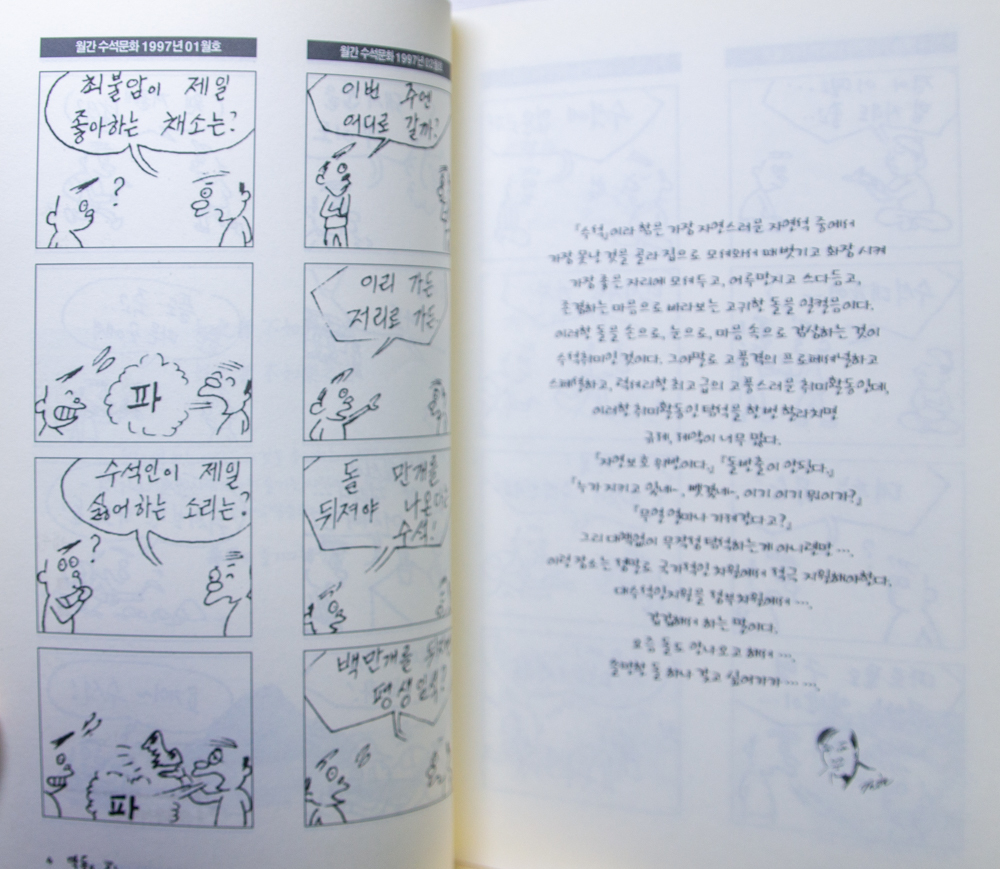 월간 수석문화 1997년 01월호
최불암이 제일
좋아하는 채소는?
?
파
수석인이 제일
싫어하는 소리는?
?
파
월간 수석문화 1997년 02월호
이번 주엔
어디로 갈까?
이리 가든
저리로 가든
돌 만개를
뒤져야 나온다는
수석!
백만개를
평생
「수석」이라 함은 가장 자연스러운 자연석 중에서
가장 못난 것을 골라 집으로 모셔와서 때 벗기고 화장 시켜
가장 좋은 자리에 모셔두고, 어루만지고 쓰다듬고,
존경하는 마음으로 바라보는 고귀한 돌을 일컬음이다.
이러한 돌을 손으로, 눈으로, 마음 속으로 감상하는 것이
수석취미인 것이다. 그야말로 고품격의 프로페셔널하고
스페셜하고, 럭셔리한 최고급의 고풍스러운 취미활동인데,
이러한 취미활동인 탐석을 한 번 할라치면
규제, 제약이 너무 많다.
「자연보호 위반이다.」 「돌반출이 안된다.」
「누가 지키고 있네~, 뺏겼네~, 이기 이기 뭐이가?」
「무얼 얼마나 가져갔다고?」
그리 대책없이 무작정 탐석하는게 아니련만 ….
이런 장소는 정말로 국가적인 차원에서 적극 지원해야한다.
대승적인지원을 정부차원에서 ….
갑갑해서 하는 말이다.
요즘 돌도 안나오고 해서 ….
훌병한 돌 하나 갖고 싶어가가 … ….